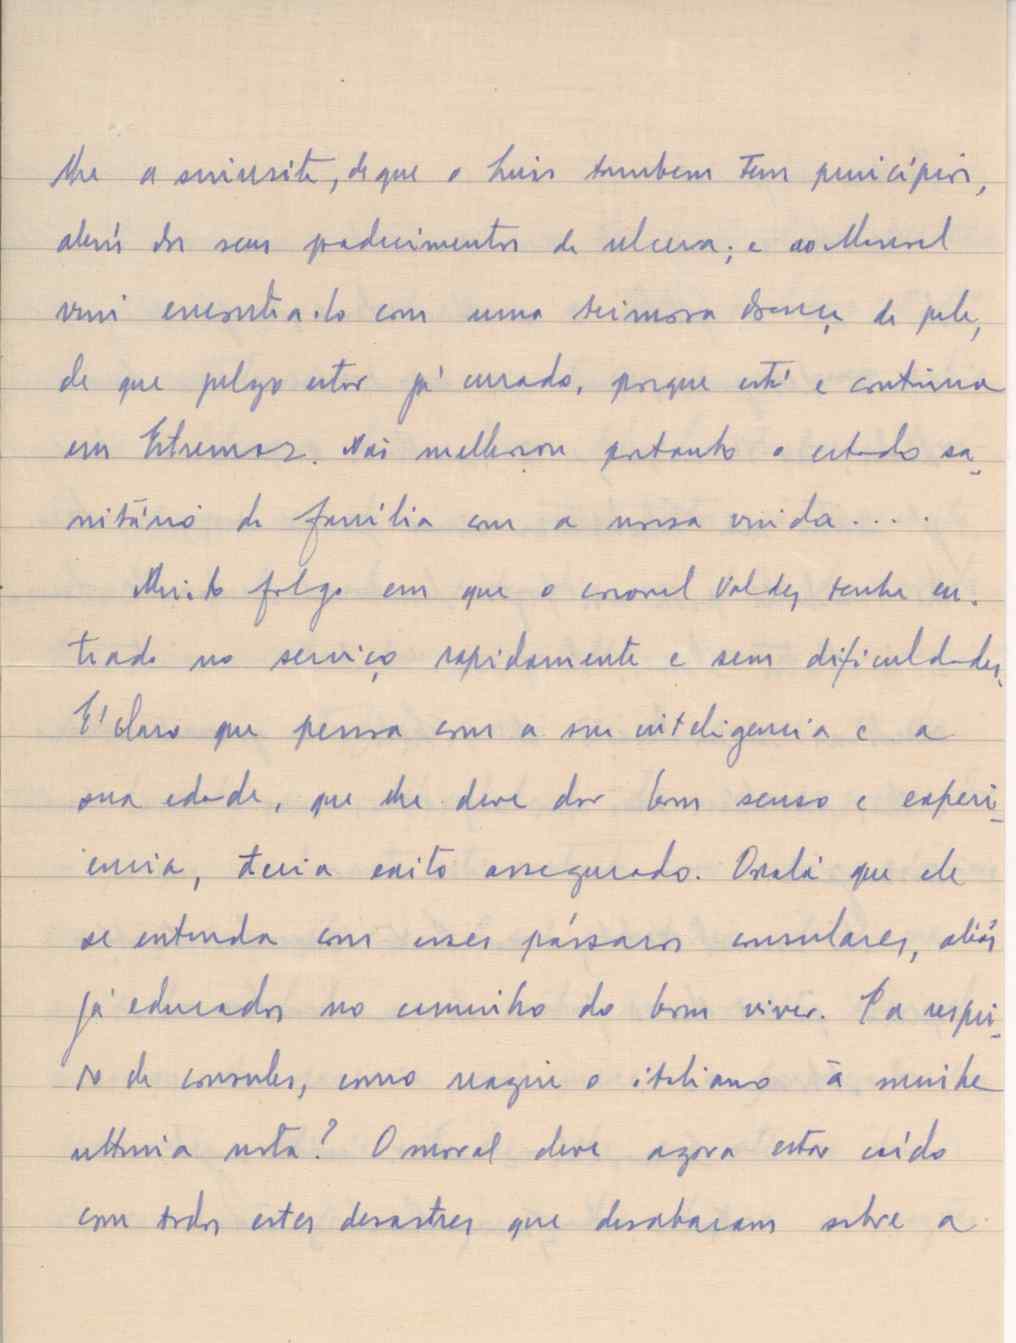 lhe a sinusite, de que o Luis tambem tem principios,
alem dos seus padecimentos de ulcera; e ao Manuel
vim encontra-lo com uma teimosa doença de pele,
de que julgo estar já curado, porque está e continua
em Estremoz. Não melhorou portanto o estado sa-
nitário da família com a nossa vinda....
Muito folgo em que o coronel Valdez tenha en-
trado no serviço rapidamente e sem dificuldades.
E' claro que pessoa com a sua inteligencia e a
sua edade, que lhe deve dar bom senso e experi-
encia, teria exito assegurado. Oxalá que ele
se entenda com esses pássaros consulares, aliás
já educados no caminho do bom viver. E a respei-
to de consules, como reagiu o italiano à minha
ultima nota? O moral deve agora estar caído
com todos estes desastres que desabaram sobre a